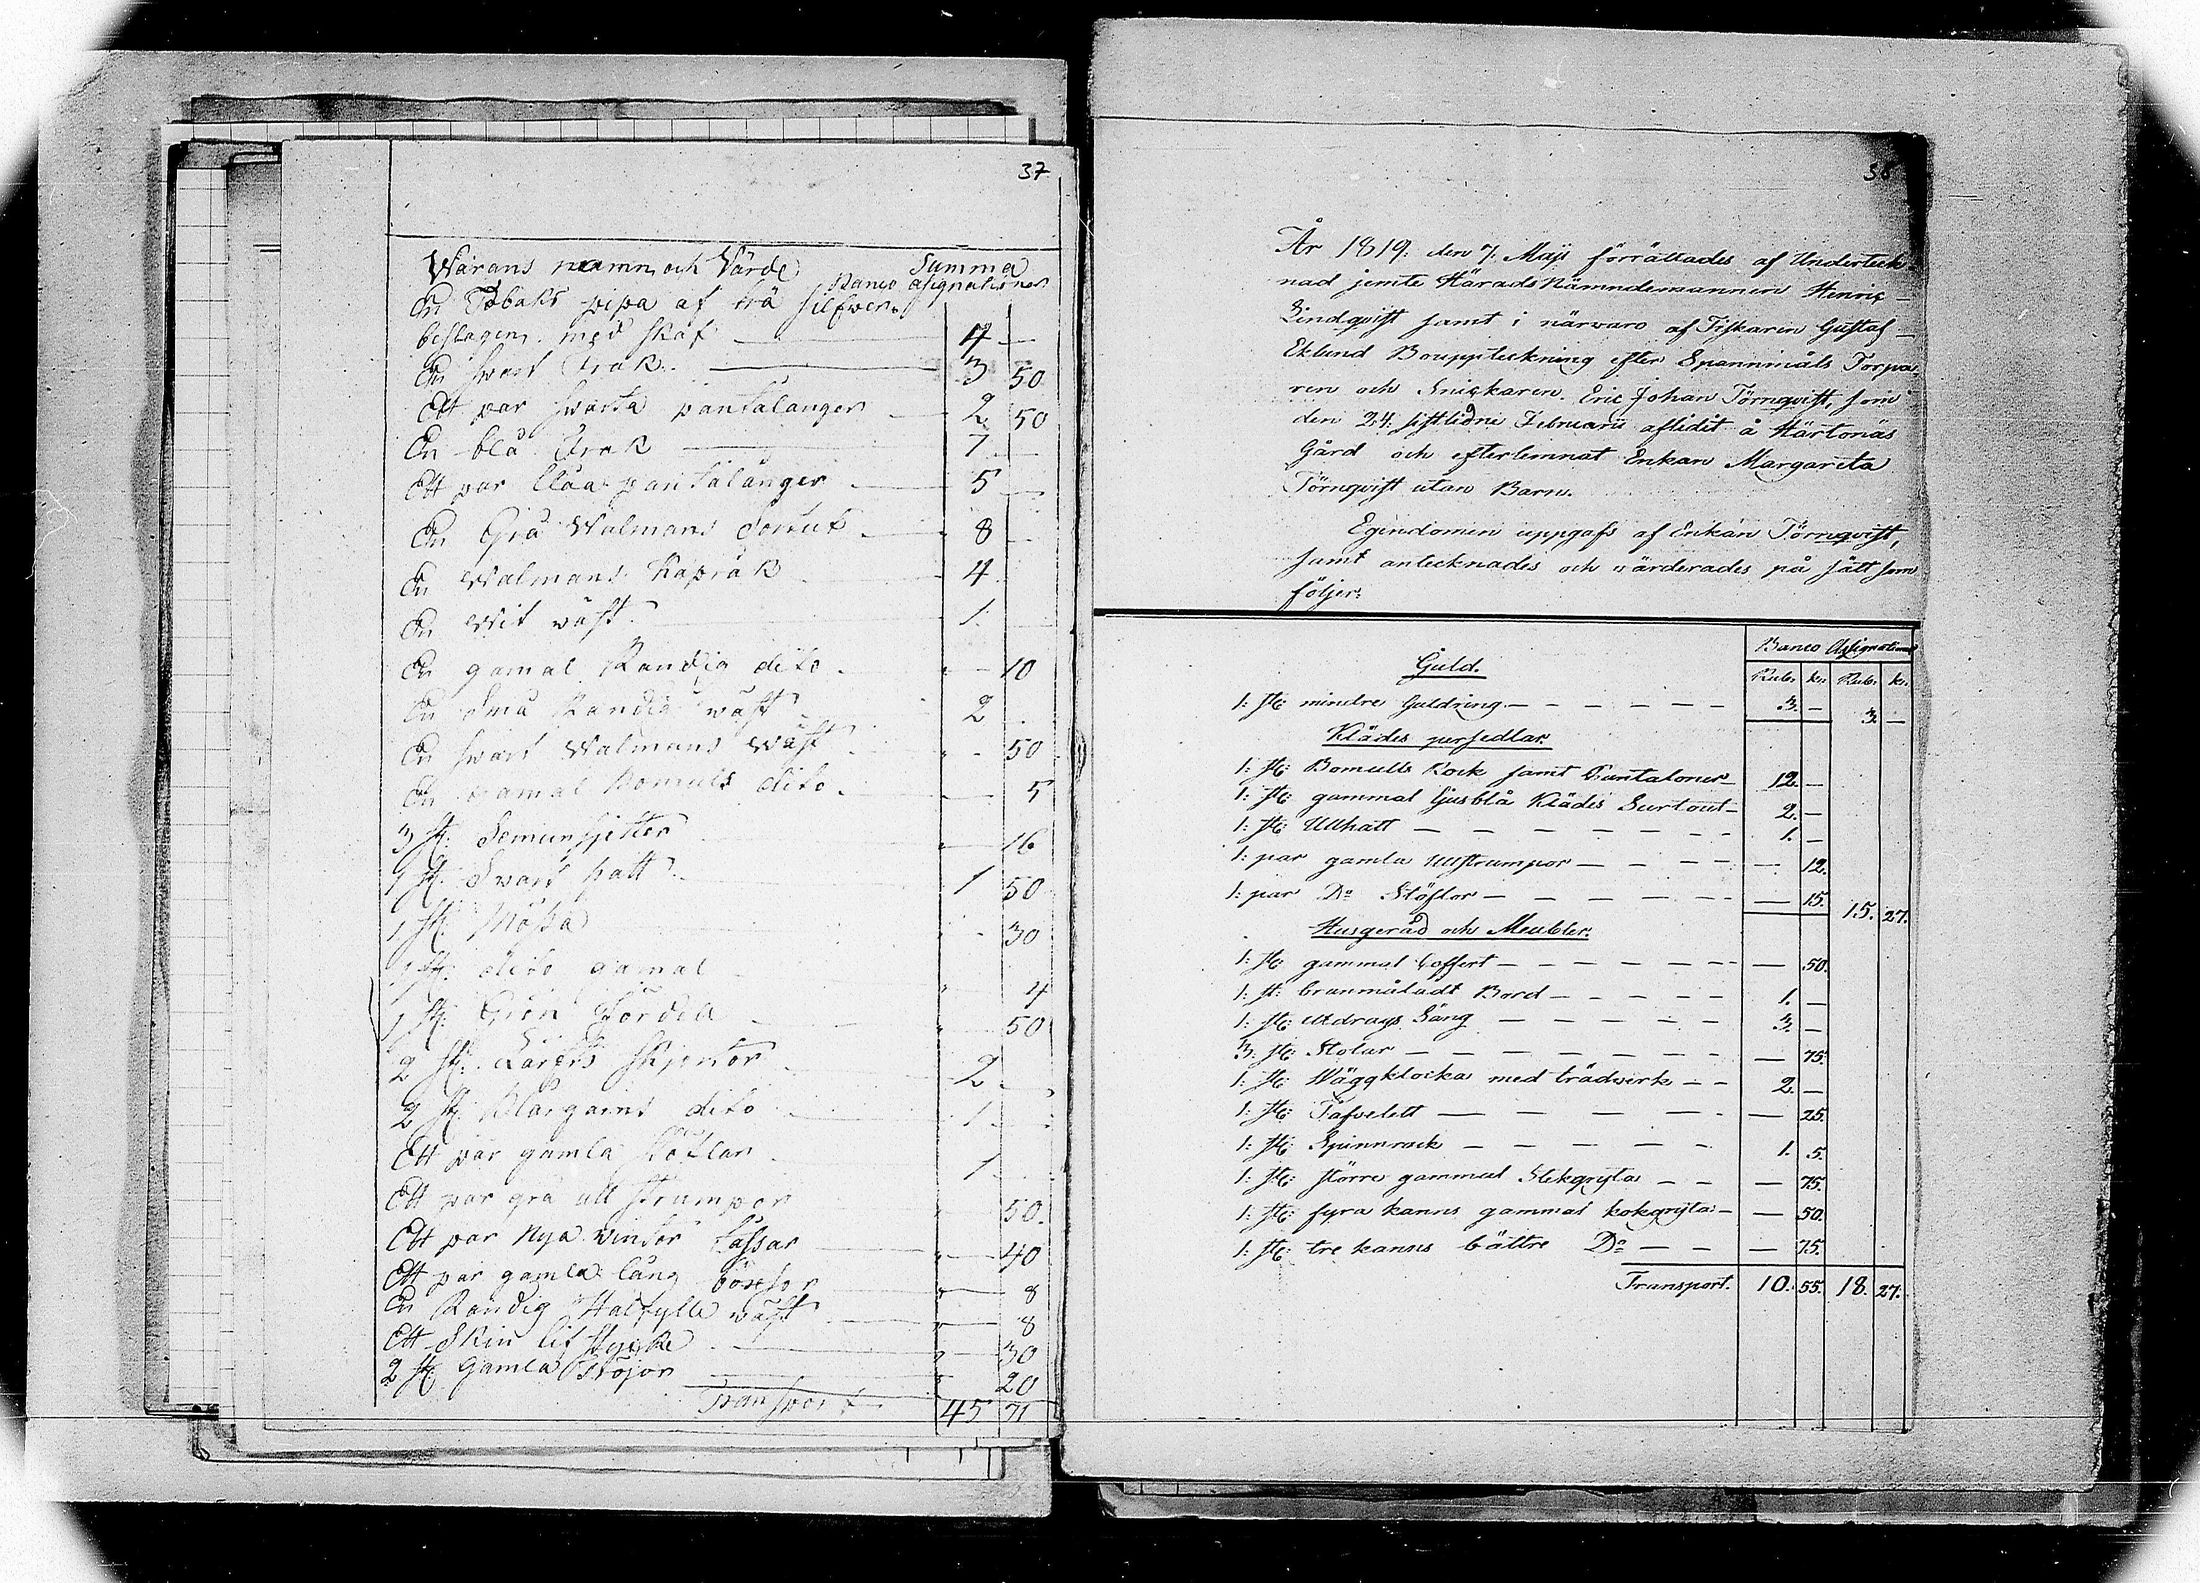 37
Wårans namn och Värde Summa
Banco Asignationer
En Tobaks pipa af trä silfver
beslagen med skaf 4 —
En svart Frak 3 50
Ett par svarta pantalånger 2 50
En blå Frak 7 —
Ett par blåa pantalånger 5 —
En Grå Walmans Sortut 8 —
En Walmans Kapråk 4
En Wit wäst 1
En gamal Randig dito " — 10
En Små Randig wäst 2
En svart Walmans Wäst " - 50
En gamal Bomuls dito — 5
3 st: — 16
1 st: Svart hatt 1 50
1 st: Mössa " - 30
1 st: dito gamal " 4
1 st: Grön Gördel " 50
2 st: Lärfts skjortor 2
2 st: Blårgarns dito 1
Ett par gamla stöflar 1
Ett par grå ull strumpor 50
Ett par Nya winter tassar " — 40
Ett par gamla lång böxsor " — 8
En Randig Halfylle wäst " — 8
Ett Skin lif stycke " — 30
2 st: Gamla Tröjor " 20
Transport 45 71
38
År 1819: den 7. Maji förrättades af Underteck-
nad jemte HäradsNämndemannen Henric
Lindqvist samt i närvaro af Fiskaren Gustaf
Eklund Bouppteckning efter Spannmåls Torpa-
ren och Snickaren Eric Johan Törnqvist, som
den 24: sistledne Februarii aflidit å Härtonäs
Gård och efterlemnat Enkan Margareta
Törnqvist utan Barn.
Egendomen uppgafs af Enkan Törnqvist,
samt antecknades och värderades på sätt som
följer:
Banco Assignationer
Guld. Rub. kn. Rub. kn.
1: st: mindre Guldring — — — — — — 3. — 3. —
Klädes persedlar.
1: st: Bomulls Rock samt Pantaloner — 12. —
1: st: gammal ljusblå Klädes Surtout — 2. —
1: st: Ullhatt — — — — — — — 1. —
1: par gamla ullstrumpor — — — — — 12.
1: par Do Stöflor — — — — — — 15. 15. 27.
Husgeråd och Meubler.
1: st: gammal Coffert — — — — — — 50.
1: st: brunmåladt Bord — — — — — 1. —
1: st: Utdrags Säng — — — — — — 3. —
3: st: Stolar — — — — — — — 75.
1: st: Wäggklocka med trädwerk — — 2. —
1: st: Tafvelett — — — — — — 25.
1: st: Spinnrock — — — — — — 1. 5.
1: st: större gammal Stekgryta — — — 75.
1: st: fyra kanns gammal kokgryta — — 50.
1: st: tre kanns bättre Do — — — 75.
Transport. 10. 55. 18. 27.